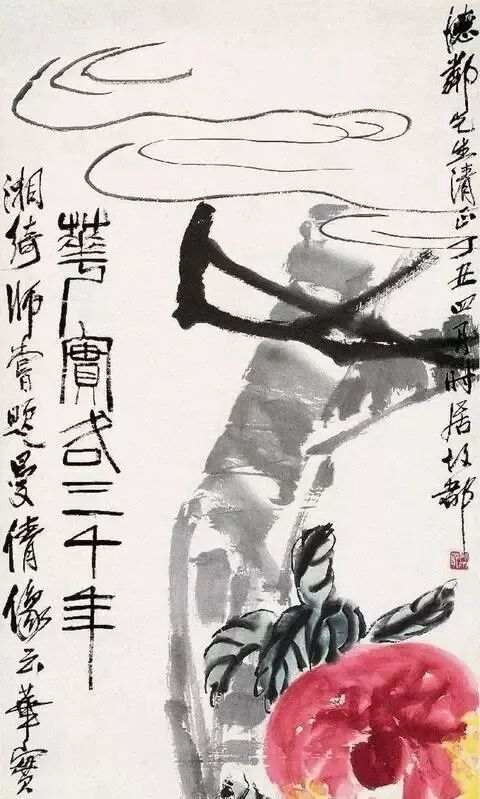 德鄰先生清正丁丑四月時居故都
華實各三千年
湘綺師嘗題曼倩像云華實